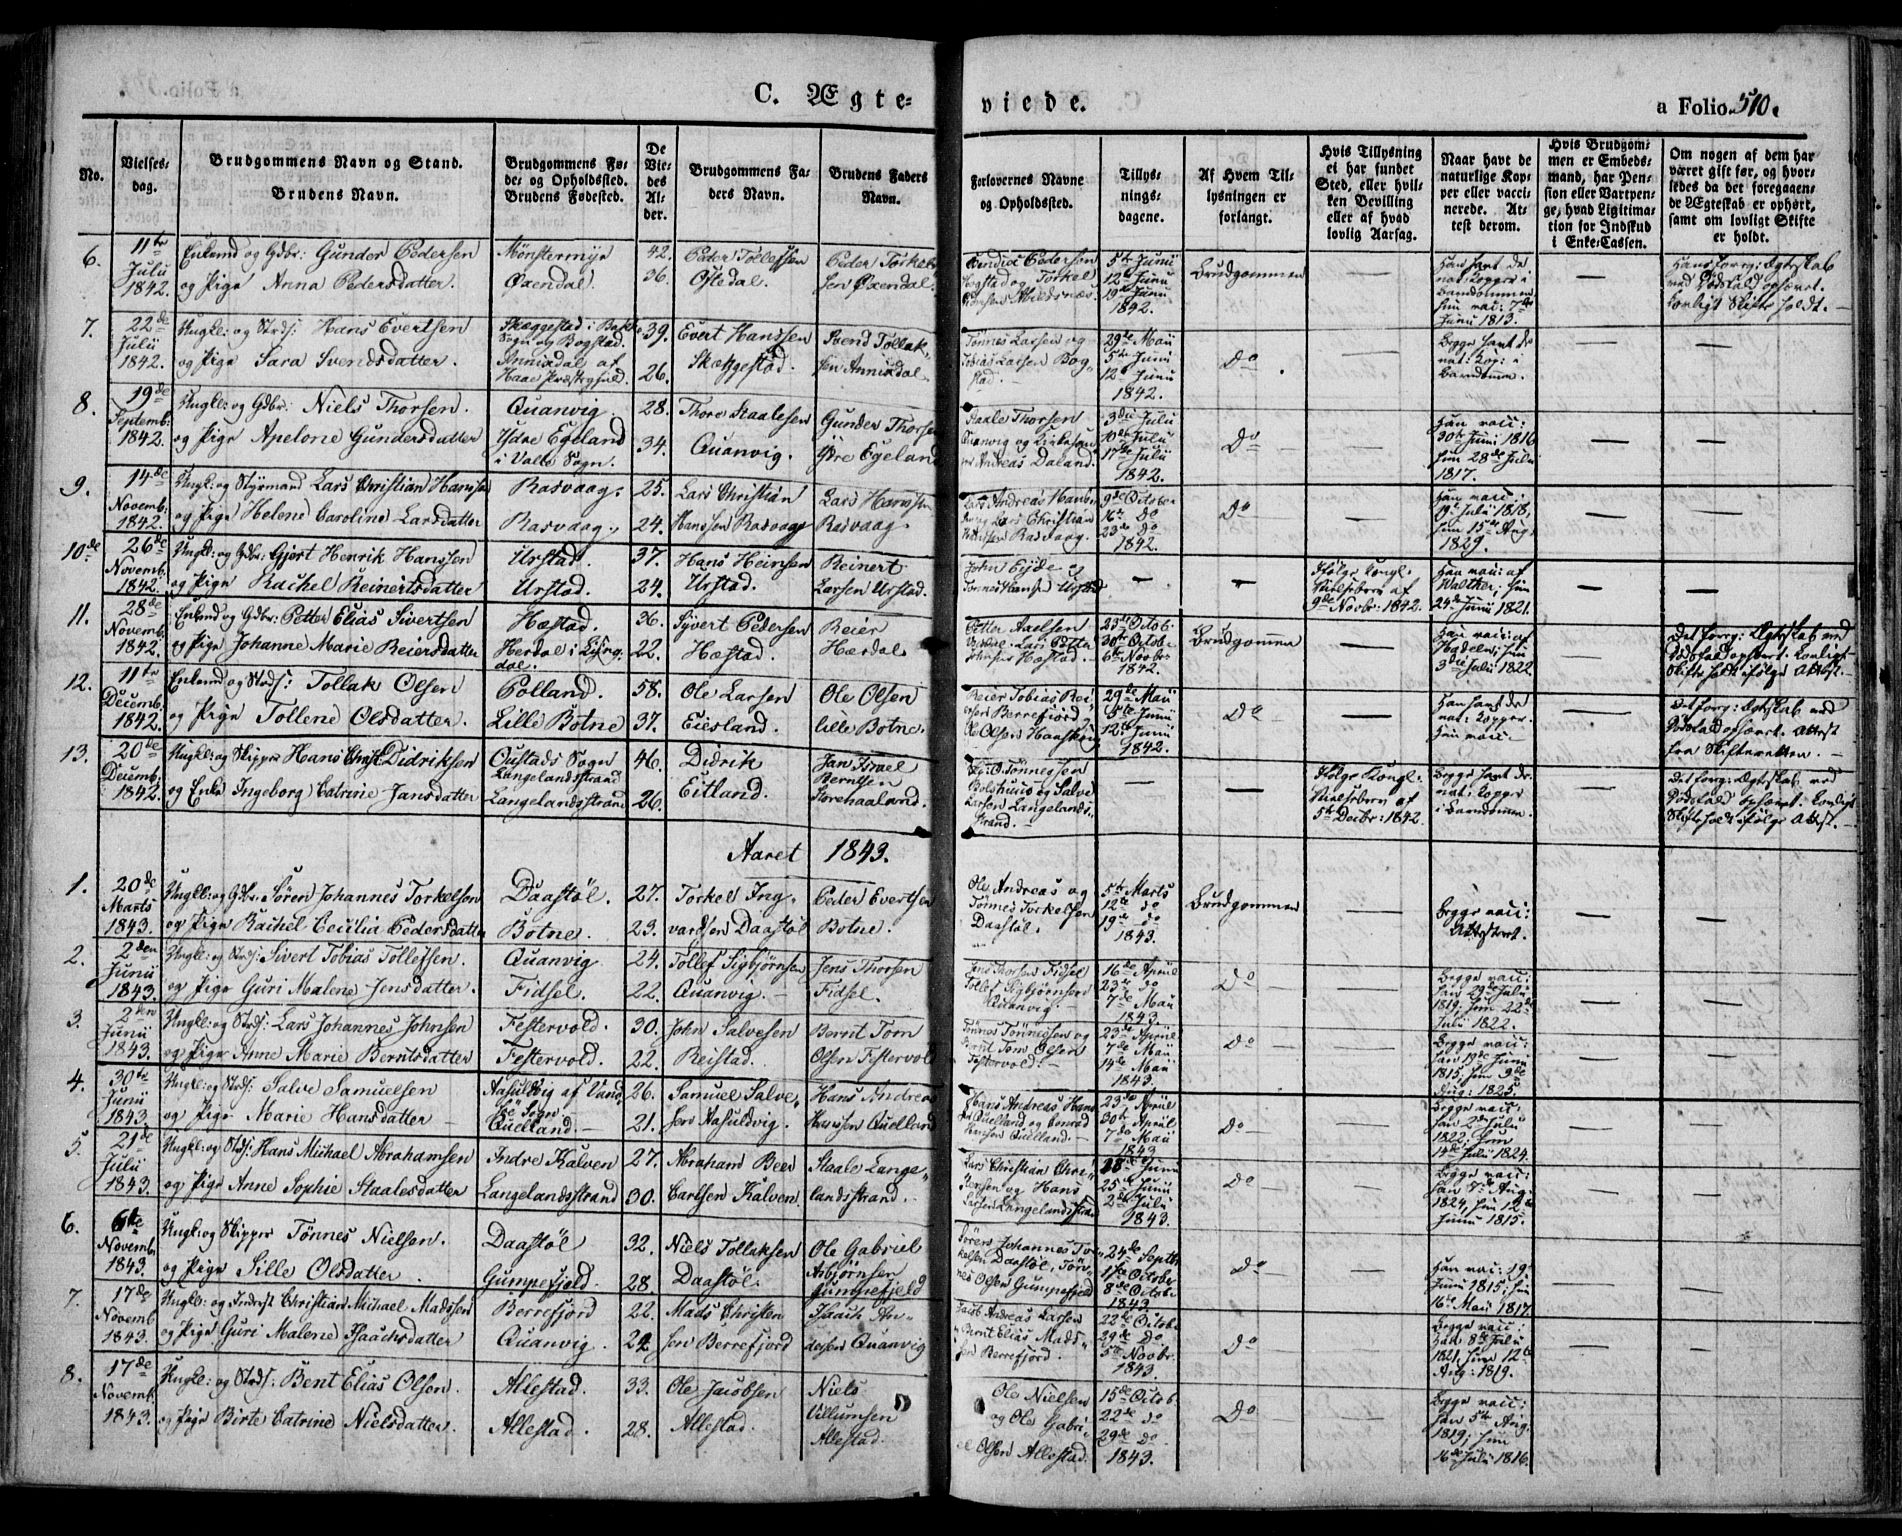 C. Ægte-
viede.
a Folio. 510.
No.
Vielses-
dag.
Brudgommens Navn og Stand.
Brudens Navn.
Brudgommens Fø-
de- og Opholdssted.
Brudens Fødested.
De
Vie-
des
Al-
der.
Brudgommens Fa-
ders Navn.
Brudens Faders
Navn.
Forlovernes Navne
og Opholdssted.
Tillys-
nings-
dagene.
Af Hvem Til-
lysningen er
forlangt.
Hvis Tillysning
ei har fundet
Sted, eller hvil-
ken Bevilling
eller af hvad
lovlig Aarsag.
Naar havt de
naturlige Kop-
per eller vacci-
nerede. At-
test derom.
Hvis Brudgom-
men er Embeds-
mand, har Pen-
sion eller Vartpen-
ge, hvad Legitima-
tion for Indskud
i Enke-Cassen.
Om nogen af dem har
været gift før, og hvor-
ledes da det foregaaen-
de Ægteskab er ophørt,
samt om lovligt Skifte
er holdt.
6.
11te
Julii
1842.
Enkemd og Gdbr: Gunder Pedersen
og Pige Anna Pedersdatter.
Mønstermyr
Øxendal.
42.
36.
Peder Tollefsen
Østedal.
Peder Torkels-
sen Øxendal.
5te Junii
12te Junii
19de Junii
1842.
Brudgommen
Han havt de
nat: Kopper i
Barndommen
hun vac: 7de
Junii 1813.
Hans forrig: Ægteskab
ved Dødsfald ophævet.
Lovligt Skifte holdt.
7.
22de
Julii
1842.
Ungkl: og Strds: Hans Evertsen
og Pige Sara Svendsdatter.
Skæggestad i Bakke
Sogn og Bogstad.
Annisdal af
Haae Præstegjeld.
39.
26.
Evert Hanssen
Skæggestad.
Svend Tollak-
sen Annisdal.
Tønnes Larsen og
Tobias Larsen Bog-
stad.
29de Maii
5te Junii
12te Junii
1842.
Do
Begge havt de
nat: Kop: i
Barndomm.
8.
19de
Septemb:
1842.
Ungkl: og Gdbr: Niels Thorsen.
og Pige Apelone Gundersdatter
Quanvig.
Ydre Egeland
i Valle Sogn.
28.
34.
Thore Staalesen
Quanvig.
Gunder Thorsen
Ydre Egeland
Staale Thorsen
Quanvig og Kirkesan-
ger Andreas Daland.
3die Julii
10de Julii
17de Julii
1842.
Do
Han vacc:
30te Junii 1816
hun 28de Julii
1817.
9.
14de
Novemb.
1842.
Ungkl: og Styrmand Lars Christian Hanssen
og Pige Helene Caroline Larsdatter
Rasvaag.
Rasvaag.
25.
24.
Lars Christian
Hanssen Rasvaag
Lars Hanssen
Rasvaag.
9de Octobr
16de Do
23de do
1842.
Do
Han vacc:
19de Julii 1818,
hun 15de Aug.
1829.
10de
26de
Novemb.
1842.
Ungkl: og Gdbr: Gjert Henrik Hanssen
og Pige Rachel Reinertsdatter
Urstad.
Urstad.
37.
24.
Hans Heinsen
Urstad.
Reinert
Larsen Urstad.
John Eyde og
Tønnes Hansen Urstad
Ifølge Kongl:
Vielsebrev af
9de Novbr: 1842.
Han vac: af
Walther, hun
24de Junii 1821.
11.
28de
Novemb.
1842.
Enkemd og Gdbr: Petter Elias Sivertsen
og Pige Johanne Marie Reiersdatter
Hæstad.
Herdal i Lyng-
dal.
36.
22.
Syvert Pedersen
Hæstad.
Reier
Hærdal.
23de Octob:
30te Octobr
6te Novbr
1842.
Brudgommen
Han vac: af
Hadeln, hun
3die Julii 1822.
Det forrig: Ægteskab ved
Dødsfald ophævet. Lovligt
Skifte holdt ifølge Attest.
12.
11te
Decemb.
1842.
Enkemd og Strds: Tollak Olsen
og Pige Tollene Olsdatter.
Polland.
Lille Botne
58.
37.
Ole Larsen
Eiesland.
Ole Olsen
lille Botne.
Reier Tobias Rei-
ersen Berrefjord,
Ole Olsen Haaskøy
29de Maii
5te Junii
12te Junii
1842.
Do
Han havt de
nat: Kopper.
Hun vacc:
Det forrig: Ægteskab ved
Dødsfald ophævet. Attest
fra Skifteretten.
13.
20de
Decemb.
1842.
Ungkl: og Skipper Hans Christ: Didriksen
og Enke Ingeborg Catrine Jansdatter
Oustads Sogn
Langelandsstrand
Langelandsstrand
46.
26.
Didrik
Eitland.
Jan Israel
Berntsen
Torehaaland.
O. Tønnessen
Bolshuus og Salve
Larsen Langelands-
strand.
Ifølge Kongl:
Vielsebrev af
5te Decbr: 1842.
Begge havt de
nat: Kopper
i Barndommen.
Det forrig: Ægteskab ved
Dødsfald ophævet. Lovligt
Skifte holdt ifølge Attest.
Aaret 1843.
1.
20de
Marts
1843.
Ungkl: og Gdbr: Søren Johannes Torkelsen
og Pige Rachel Cecilia Pedersdatter
Daastøl.
Botne.
27.
23.
Torkel Ing-
vardsen Daastøl
Peder Evertsen
Botne.
Ole Andreas og
Tønnes Torkelsen
Daastøl.
5te Marts
12te do
19de do
1843.
Brudgommen
Begge vacc:
Attesteret.
2.
2den
Junii
1843.
Ungkl: og Strds: Sivert Tobias Tollefsen.
og Pige Guri Malene Jensdatter.
Quanvig
Fidsel.
24.
22.
Tollef Sigbjørnsen
Quanvig.
Jens Thorsen
Fidsel.
Jens Thorsen Fidsel
Tollef Sigbjørnsen
Quanvig.
16de Aprill
23de do
7de Maii
1843.
Do
Begge vacc:
han 29de Julii
1819, hun 22de
Julii 1822.
3.
2den
Junii
1843.
Ungkl: og Strds: Lars Johannes Johnsen
og Pige Anne Marie Berntsdatter
Festervold.
Festervold.
30.
22.
John Salvesen
Reistad.
Bernt Tom
Olsen Festervold
Tønnes Tønnessen og
Bernt Tom Olsen
Festervold.
23de Aprill
7de Maii
14de Maii
1843.
Do
Begge vacc:
han 19de Junii
1815, hun 9de
Aug: 1825.
4.
30te
Junii
1843.
Ungkl: og Strds: Salve Samuelsen
og Pige Marie Hansdatter
Aasuldvig af Vand-
søe Sogn.
Quelland.
26.
21.
Samuel Salve-
sen Aasuldvig.
Hans Andreas
Hanssen Quelland
Hans Andreas Hans-
sen Quelland og Conrad
Hansen Quelland.
23de Aprill
30te Aprill
7de Maii
1843.
Do
Begge vacc:
han 2den Julii
1822, hun
14de Julii 1824.
5.
21de
Julii
1843.
Ungkl: og Strds: Hans Michael Abrahamsen
og Pige Anne Sophie Staalesdatter
Indre Kalven
Langelandsstrand
27.
30.
Abraham Beer
Carlsen Kalven
Staale Lange-
landsstrand.
Lars Christian Chri-
stensen og Hans
Larsen Langelandsstrand
18de Junii
25de Junii
2den Julii
1843.
Do
Begge vacc:
han 7de Aug:
1824, hun 12te
Junii 1815.
6.
6te
Novemb.
1843.
Ungkl: og Skipper Tønnes Nielsen.
og Pige Sille Olsdatter.
Daastøl
Gumpefjeld.
32.
28.
Niels Tollaksen
Daastøl.
Ole Gabriel
Asbjørnsen
Gumpefjeld
Søren Johannes Tor-
kelsen Daastøl, Tøn-
nes Olsen Gumpefjeld
24de Septbr
1ste October
8de Octobr
1843.
Do
Han vac: 19de
Junii 1815, hun
16de Maii 1817.
7.
17de
Novemb
1843.
Ungkl: og Inderst Christian Michael Madssen
og Pige Guri Malene Isaachsdatter
Berrefjord
Quanvig.
22.
24
Mads Christen-
sen Berrefjord
Isaach An-
dersen Quanvig
Jacob Andreas Larsen
Bernt Elias Mads-
sen Berrefjord.
22de Octobr
29de Do
5te Novbr.
1843.
Do
Begge vacc:
han 8de Julii
1821, hun 12te
Aug: 1819.
8.
17de
Novemb.
1843.
Ungkl: og Strds: Bent Elias Olsen.
og Pige Birte Catrine Nielsdatter.
Allestad.
Allestad.
33.
28.
Ole Jacobsen
Allestad.
Niels
Villumsen
Allestad.
Ole Nielsen
og Ole Gabri-
el Olsen Allestad.
15de Octob.
22de do
29de do
1843.
Do
Begge vacc:
han 5te Aug.
1819, hun
16de Julii 1816.